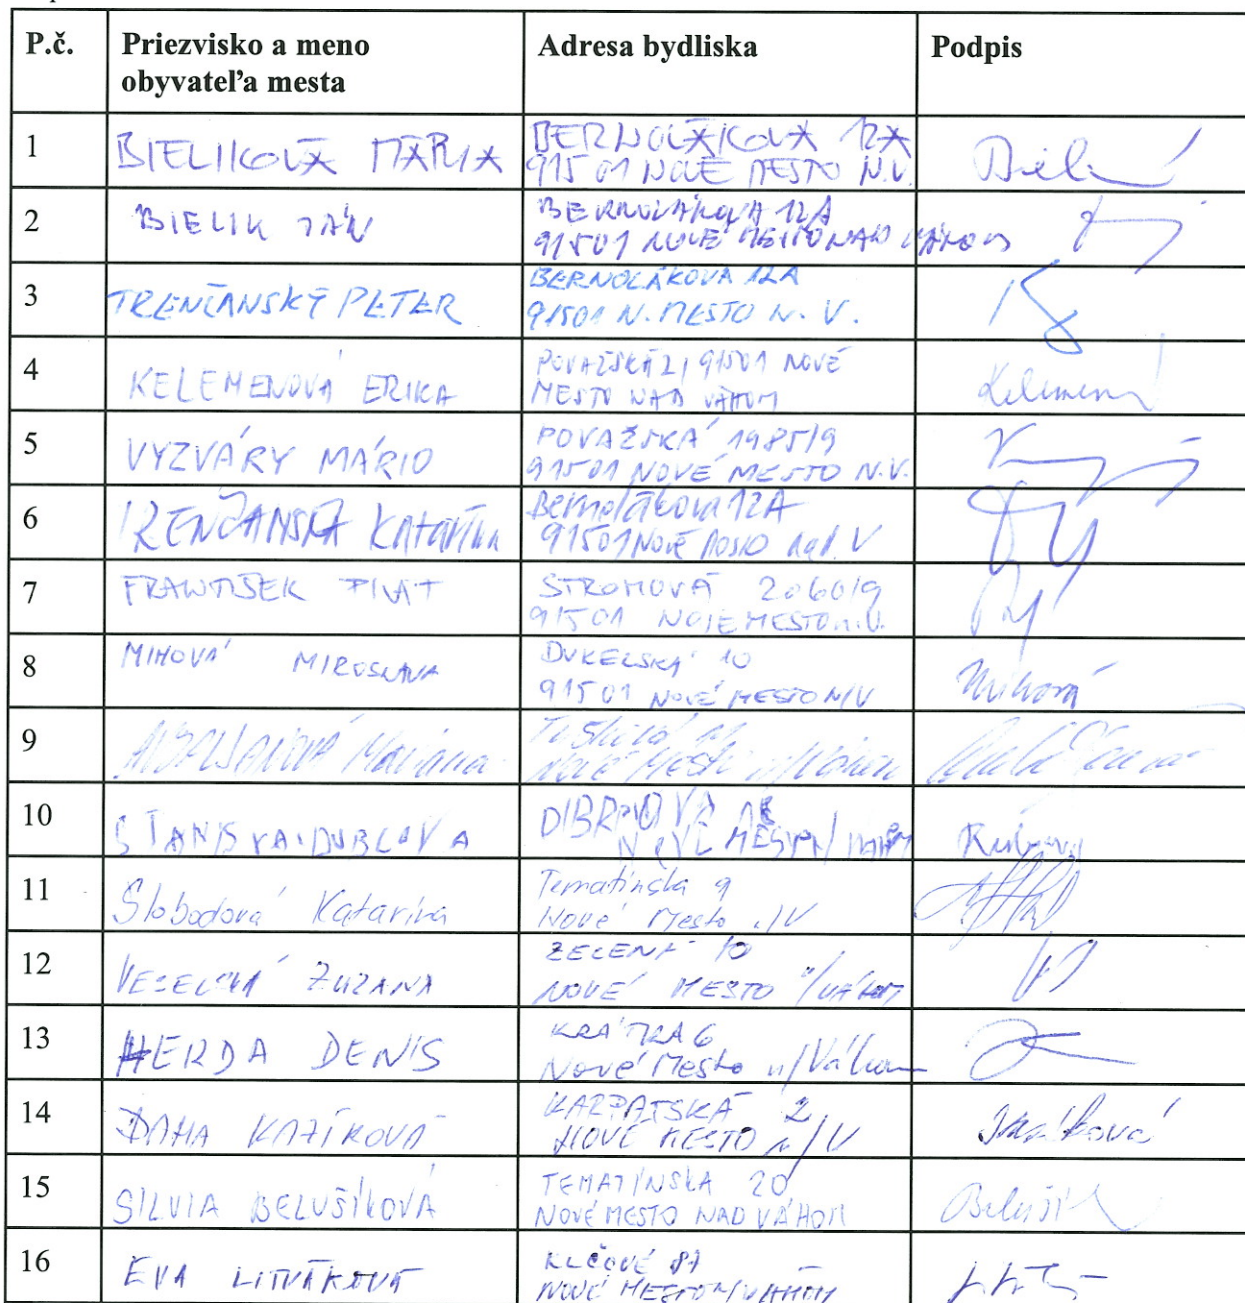 P.č. Priezvisko a meno Adresa bydliska Podpis
obyvateľa mesta
1 BIELIKOVÁ MÁRIA BERNOLÁKOVA 12A
91501 NOVÉ MESTO N.V.
2 BIELIK JÁN BERNOLÁKOVA 12A
91501 NOVÉ MESTO NAD VÁHOM
3 TRENČANSKÝ PETER BERNOLÁKOVA 12A
91501 N. MESTO N. V.
4 KELEMENOVÁ ERIKA POVAŽSKÁ 2, 91501 NOVÉ
MESTO NAD VÁHOM
5 VYZVÁRY MÁRIO POVAŽSKÁ 1985/9
91501 NOVÉ MESTO N.V.
6 TRENČANSKÁ Katarína Bernolákova 12A
91501 Nové Mesto nad. V
7 FRANTIŠEK STROMOVÁ 2060/9
91501 NOVE MESTO n.V.
8 MIHOVÁ MIROSLAVA DUKELSKÁ 10
91501 NOVÉ MESTO N/V Mihová
9 Mariana
Nové Mesto n/Váhom
10 DIBROVOVA
NOVÉ MESTO N/VÁHOM
11 Slobodová Katarína Tematínska 9
Nové Mesto n/V
12 VESELSKÁ ZUZANA ZELENÁ 10
NOVÉ MESTO n/VÁHOM
13 HERDA DENIS KRÁTKA 6
Nové Mesto n/Váhom
14 KARPATSKÁ 2
NOVÉ MESTO n/V
15 SILVIA BELUŠÍKOVÁ TEMATÍNSKA 20
NOVÉ MESTO NAD VÁHOM
16 EVA LITVÁKOVÁ KLČOVÉ 87
NOVÉ MESTO N/VÁHOM